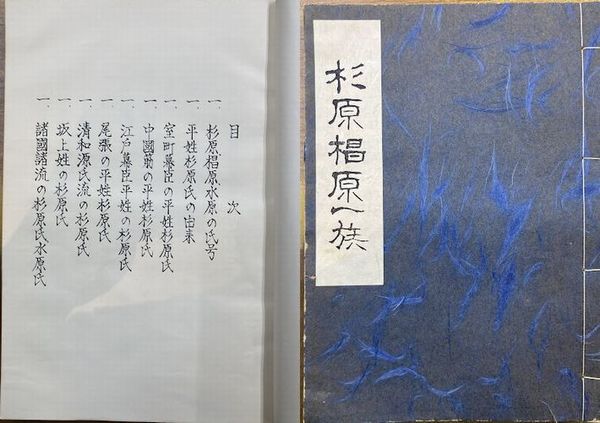 杉原椙原一族
目次
一、杉原椙原水原の氏号
一、平姓杉原氏の由来
一、室町幕臣の平姓杉原氏
一、中國筋の平姓杉原氏
一、江戸幕臣平姓の杉原氏
一、尾張の平姓杉原氏
一、清和源氏流の杉原氏
一、坂上姓の杉原氏
一、諸國諸流の杉原氏水原氏